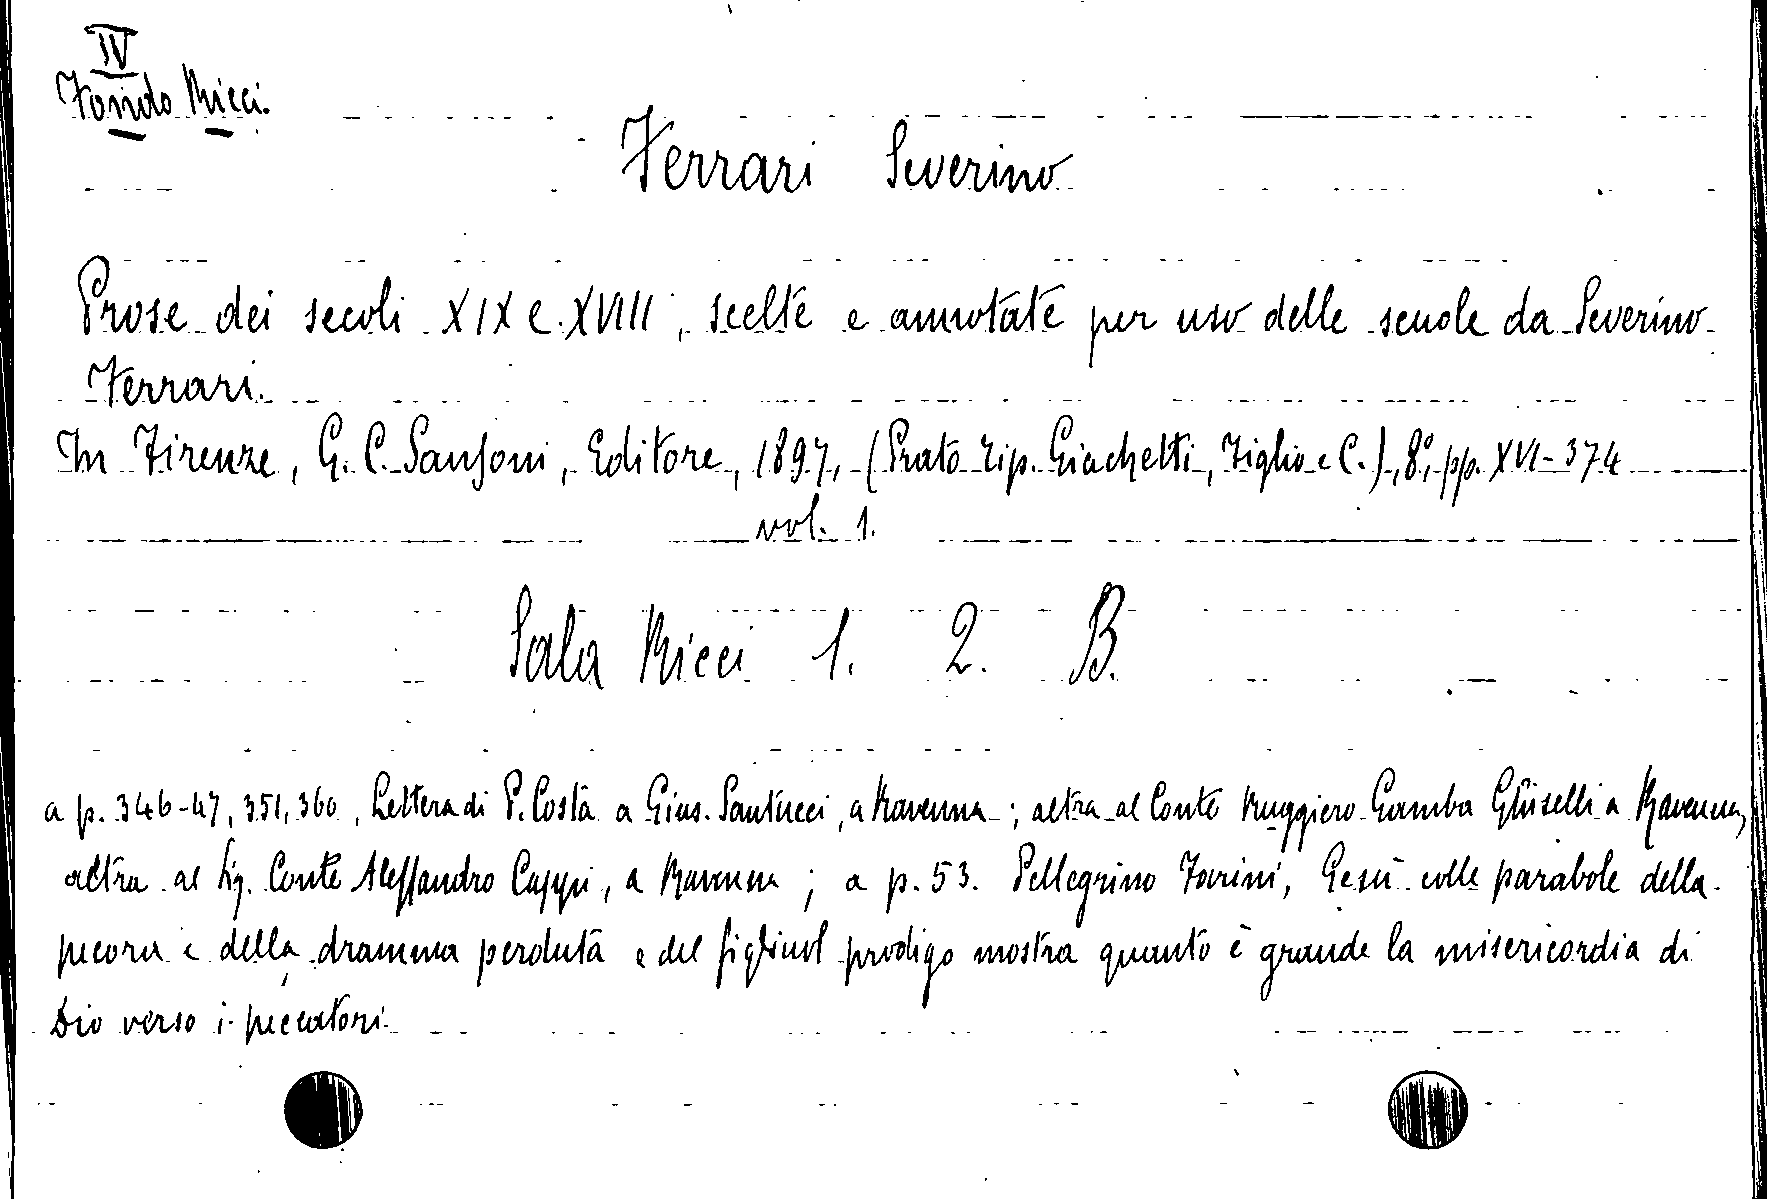 IV
Fondo Ricci.
Ferrari Severino
Prose dei secoli XIX e XVIII, scelte e annotate per uso delle scuole da Severino
Ferrari.
In Firenze, G. C. Sansoni, Editore, 1897, (Prato Tip. Giachetti, Figlio e C.), 8°, pp. XVI-374
vol. 1.
Sala Ricci 1. 2. B.
a p. 346-47, 351, 360, Lettera di P. Costa a Gius. Santucci, a Ravenna; altra al Conte Ruggiero Gamba Ghiselli a Ravenna,
altra al Sig. Conte Alessandro Cappi, a Ravenna; a p. 53. Pellegrino Farini, Gesù colle parabole della
pecora e della dramma perduta e del figliuol prodigo mostra quanto è grande la misericordia di
Dio verso i peccatori.